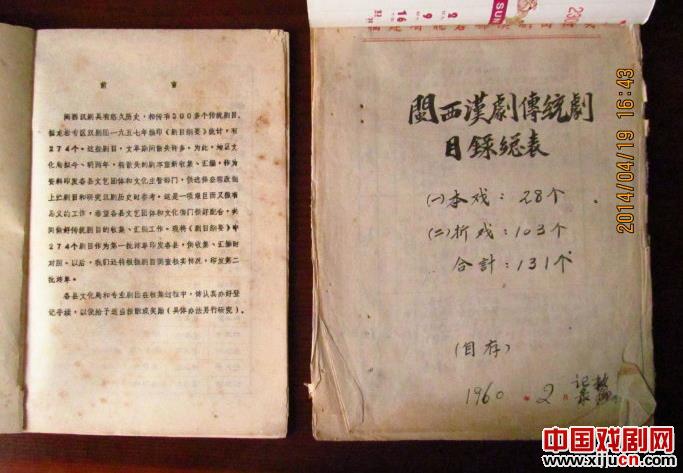 前 言
闽西汉剧具有悠久历史，相传有800多个传统剧目，
据龙岩专区汉剧团一九五七年编印《剧目纲要》统计，有
274个。这些剧目，文革期间散失许多，为此，地区文
化局拟今、明两年，将散失的剧本重新收集、汇编，作为
资料印发各县文艺团体和文化主管部门，供选择套
上演剧目和研究汉剧历史时参考。这是一项艰巨而又很有
意义的工作，希望各县文艺团体和文化部门很好配合，共
同做好传统剧目的收集、汇编工作。现将《剧目纲要》中
274个剧目作为第一批清单印发各县，供收集、汇编时
对照。以后，我们还将根据剧目调查核实情况，印发第二
批清单。
各县文化局和专业剧团在收集过程中，请认真办好登
记手续，以便给予适当报酬或奖励（具体办法另行研究）。
SUN
2
9
16
閩西漢劇傳統劇
目録總表
(一)本戏：28个
(二)折戏：103个
合計：131个
(自存)
1960年2月
2014/04/19 16:43
中国戏剧网
www.xijucn.com